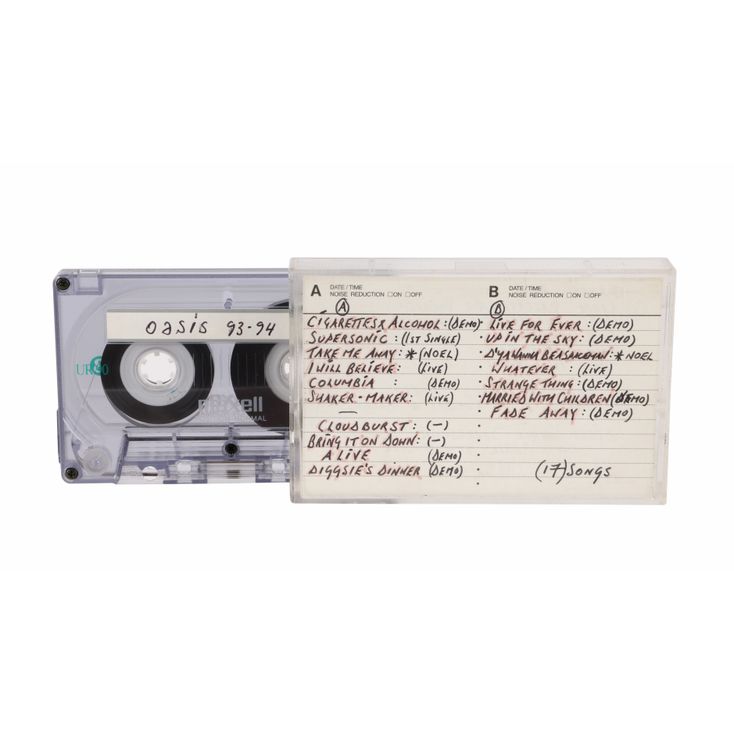 oasis 93-94
UR 90
maxell
A DATE / TIME
NOISE REDUCTION □ON □OFF
A
CIGARETTES & ALCOHOL : (DEMO)
SUPERSONIC : (1ST SINGLE)
TAKE ME AWAY : * (NOEL)
I WILL BELIEVE : (LIVE)
COLUMBIA : (DEMO)
SHAKER-MAKER : (LIVE)
—
CLOUDBURST : (—)
BRING IT ON DOWN : (—)
ALIVE (DEMO)
DIGGSIE'S DINNER (DEMO)
B DATE / TIME
NOISE REDUCTION □ON □OFF
B
LIVE FOR EVER : (DEMO)
UP IN THE SKY : (DEMO)
D'YA WANNA BE A SPACEMAN : * NOEL
WHATEVER : (LIVE)
STRANGE THING : (DEMO)
MARRIED WITH CHILDREN (DEMO)
FADE AWAY : (DEMO)
(17) SONGS